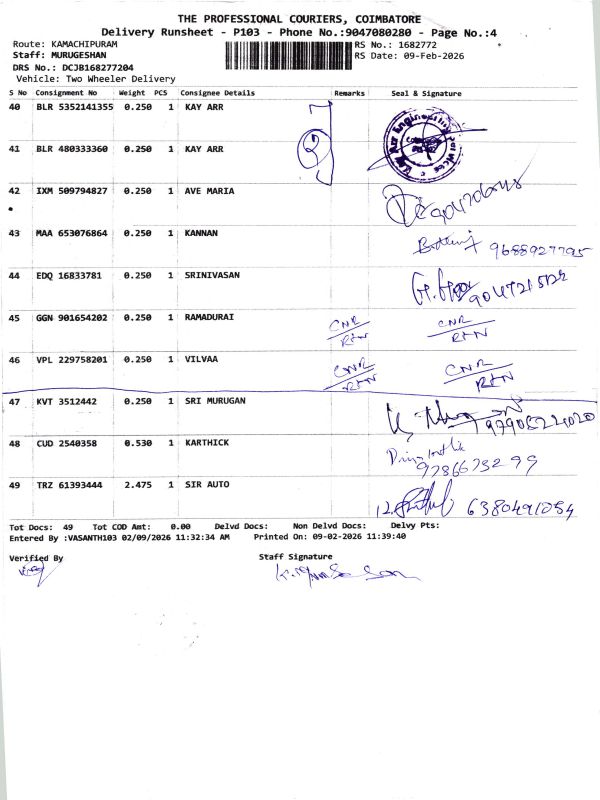 THE PROFESSIONAL COURIERS, COIMBATORE
Delivery Runsheet - P103 - Phone No.:9047080280 - Page No.:4
Route: KAMACHIPURAM RS No.: 1682772
Staff: MURUGESHAN RS Date: 09-Feb-2026
DRS No.: DCJB168277204
Vehicle: Two Wheeler Delivery
S No Consignment No Weight PCS Consignee Details Remarks Seal & Signature
40 BLR 5352141355 0.250 1 KAY ARR
41 BLR 480333360 0.250 1 KAY ARR 2
42 IXM 509794827 0.250 1 AVE MARIA
43 MAA 653076864 0.250 1 KANNAN 9688927795
44 EDQ 16833781 0.250 1 SRINIVASAN
45 GGN 901654202 0.250 1 RAMADURAI CNR CNR
46 VPL 229758201 0.250 1 VILVAA CNR CNR
47 KVT 3512442 0.250 1 SRI MURUGAN
48 CUD 2540358 0.530 1 KARTHICK
49 TRZ 61393444 2.475 1 SIR AUTO
Tot Docs: 49 Tot COD Amt: 0.00 Delvd Docs: Non Delvd Docs: Delvy Pts:
Entered By :VASANTH103 02/09/2026 11:32:34 AM Printed On: 09-02-2026 11:39:40
Verified By Staff Signature